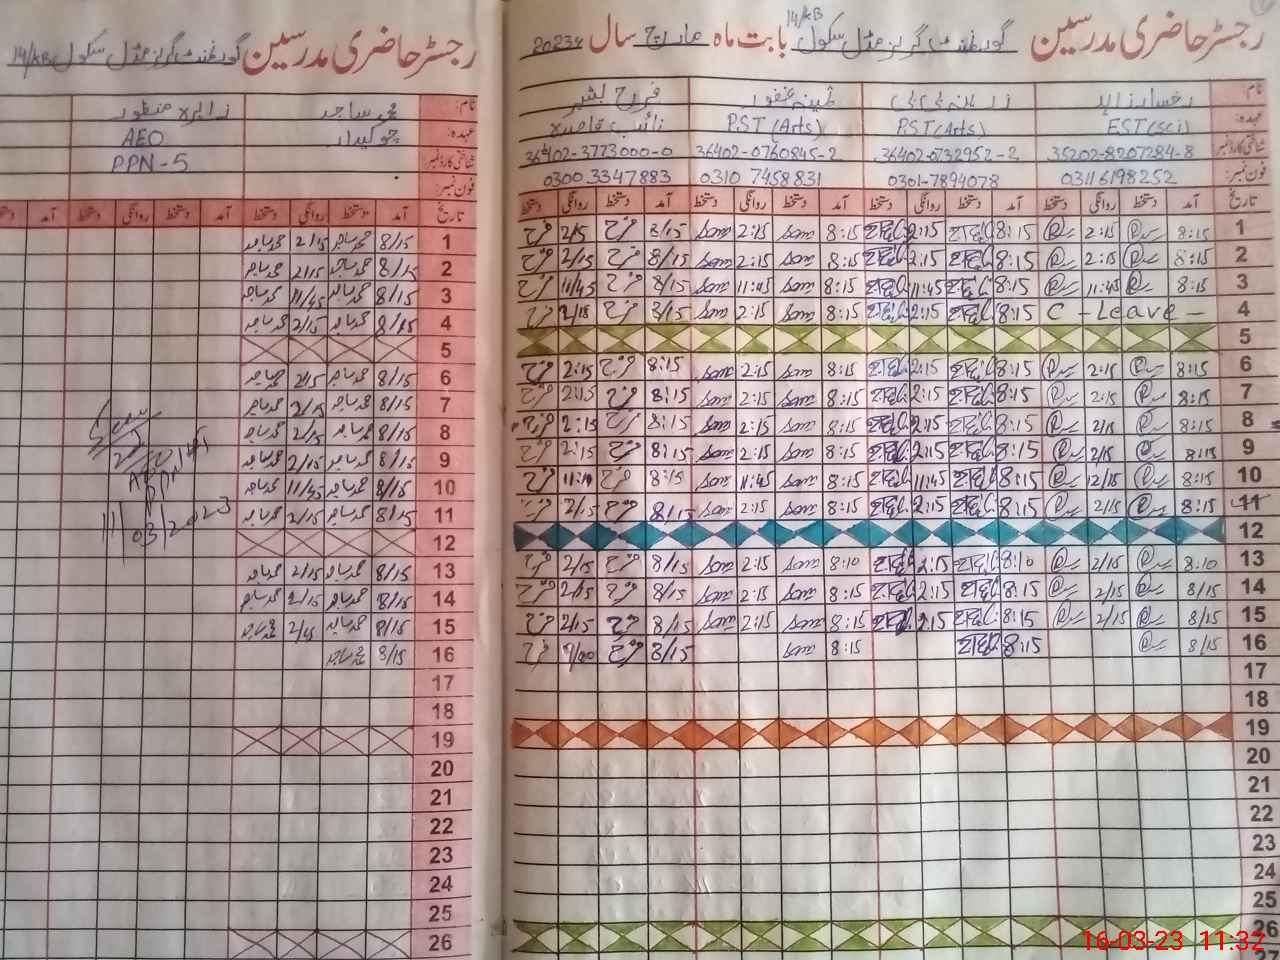 رجسٹر حاضری مدرسین گورنمنٹ گرلز مڈل سکول 14/KB بابت ماہ مارچ سال 2023ء
نام: رخسار زاہد ثمینہ غفور فرح بشیر
عہدہ: EST (Sci) P.ST (Arts) P.ST (Arts) نائب قاصدہ
شناختی کارڈ نمبر: 35202-8207284-8 36402-0732952-2 36402-0760845-2 36402-3773000-0
فون نمبر: 03116198252 0301-7894078 0310 7458831 0300 3347883
تاریخ آمد دستخط روانگی دستخط آمد دستخط روانگی دستخط آمد دستخط روانگی دستخط آمد دستخط روانگی دستخط
1 8:15 2:15 8:15 2:15 8:15 2:15 8/15 2/5
2 8:15 2:15 8:15 2:15 8:15 2:15 8/15 2/15
3 8:15 11:45 8:15 11:45 8:15 11:45 8/15 11/45
4 C - Leave - 8:15 2:15 8:15 2:15 8/15 2/15
5
6 8:15 2:15 8:15 2:15 8:15 2:15 8:15 2:15
7 8:15 2:15 8:15 2:15 8:15 2:15 8:15 2:15
8 8:15 2/15 8:15 2:15 8:15 2:15 8:15 2:15
9 8:15 2/15 8:15 2:15 8:15 2:15 8:15 2:15
10 8:15 12/15 8:15 11:45 8:15 11:45 8:15
11 8:15 2/15 8:15 2:15 8:15 2:15 8/15 2/15
12
13 8:10 2/15 8:10 2:15 8:10 2:15 8/15 2/15
14 8/15 2/15 8:15 2:15 8:15 2:15 8/15 2/15
15 8/15 2/15 8:15 2:15 8:15 2:15 8/15 2/15
16 8/15 8:15 8:15 8/15
17
18
19
20
21
22
23
24
25
26
27
رجسٹر حاضری مدرسین گورنمنٹ گرلز مڈل سکول 14/KB
نام: محمد ساجد زاہرہ منظور
عہدہ: چوکیدار AEO
شناختی کارڈ نمبر: PPN-5
فون نمبر:
تاریخ آمد دستخط روانگی دستخط آمد دستخط روانگی دستخط آمد دستخط
1 8/15 محمد ساجد 2/15 محمد ساجد
2 8/15 محمد ساجد 2/15 محمد ساجد
3 8/15 محمد ساجد 11/45 محمد ساجد
4 8/15 محمد ساجد 2/15 محمد ساجد
5
6 8/15 محمد ساجد 2/15 محمد ساجد
7 8/15 محمد ساجد 2/15 محمد ساجد
8 8/15 محمد ساجد 2/15 محمد ساجد
9 8/15 محمد ساجد 2/15 محمد ساجد
10 8/15 محمد ساجد 11/45 محمد ساجد
11 8/15 محمد ساجد 2/15 محمد ساجد
12
13 8/15 محمد ساجد 2/15 محمد ساجد
14 8/15 محمد ساجد 2/15 محمد ساجد
15 8/15 محمد ساجد 2/15 محمد ساجد
16 8/15 محمد ساجد
17
18
19
20
21
22
23
24
25
26
Seen
11/03/2023
16-03-23 11:32